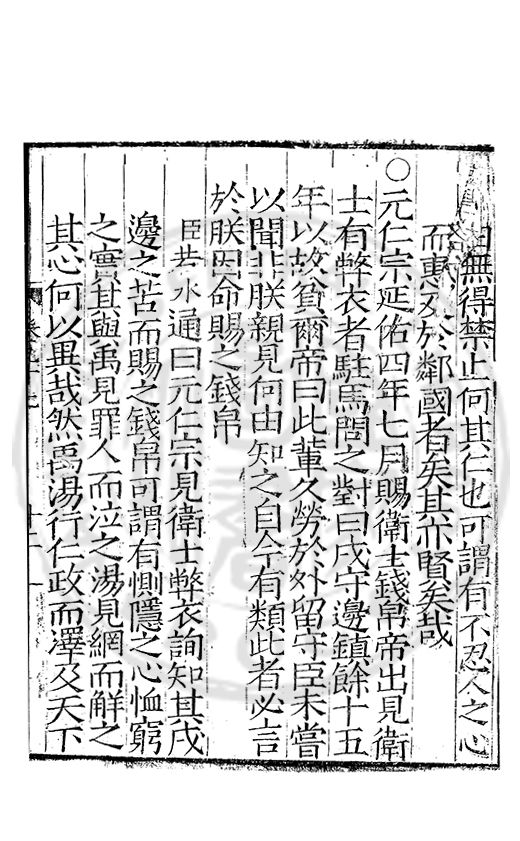 無得禁止何其仁也可謂有不忍人之心
而惠及於鄰國者矣其亦賢矣哉
○元仁宗延佑四年七月賜衛士錢帛帝出見衛
士有弊衣者駐馬問之對曰戍守邊鎮餘十五
年以故貧爾帝曰此輩久勞於外留守臣未嘗
以聞非朕親見何由知之自今有類此者必言
於朕因命賜之錢帛
臣若水通曰元仁宗見衛士弊衣詢知其戍
邊之苦而賜之錢帛可謂有惻隱之心恤窮
之實其與禹見罪人而泣之湯見網而解之
其心何以異哉然禹湯行仁政而澤及天下